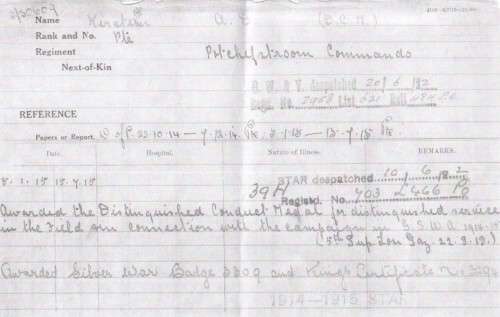 Name Kirsten A. E. (D.C.M.)
Rank and No. Pte
Regiment Potchefstroom Commando
Next-of-Kin
despatched 20/6/
No. List 621 Roll
REFERENCE
Papers or Report. D of P. 22.10.14 — 7.12.14. Pte. 5.1.15 — 15.7.15 Pte.
Date. Hospital. Nature of Illness. REMARKS.
5.1.15 15.7.15
STAR despatched 10/6/
39H Registd. No. 703 L 466
Awarded the Distinguished Conduct Medal for distinguished service
in the Field in connection with the campaign in G.S.W.A. 1914-15
(5th Sup. Lon Gaz. 22.8.18.)
Awarded Silver War Badge and King's Certificate No.
1914—1915 STAR